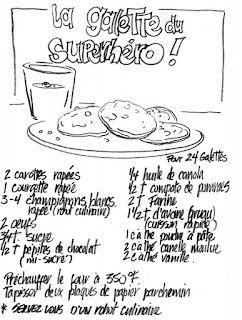 La galette du
Superhéro !
Pour 24 Galettes
2 carottes rapées
1 courgette rapée
3-4 champignons blancs
rapée (robot culinaire)
2 oeufs
3/4 t. sucre
1/2 t pépites de chocolat
(mi-sucré)
1/4 huile de canola
1/2 t compote de pommes
2 T Farine
1 1/2 t d'avoine gruau
(cuisson rapide)
1 c à thé poudre à pâte
2 c à thé canelle moulue
2 c à thé vanille.
Préchauffer le four à 350°F.
Tapisser deux plaques de papier parchemin
* Servez vous d'un robot culinaire